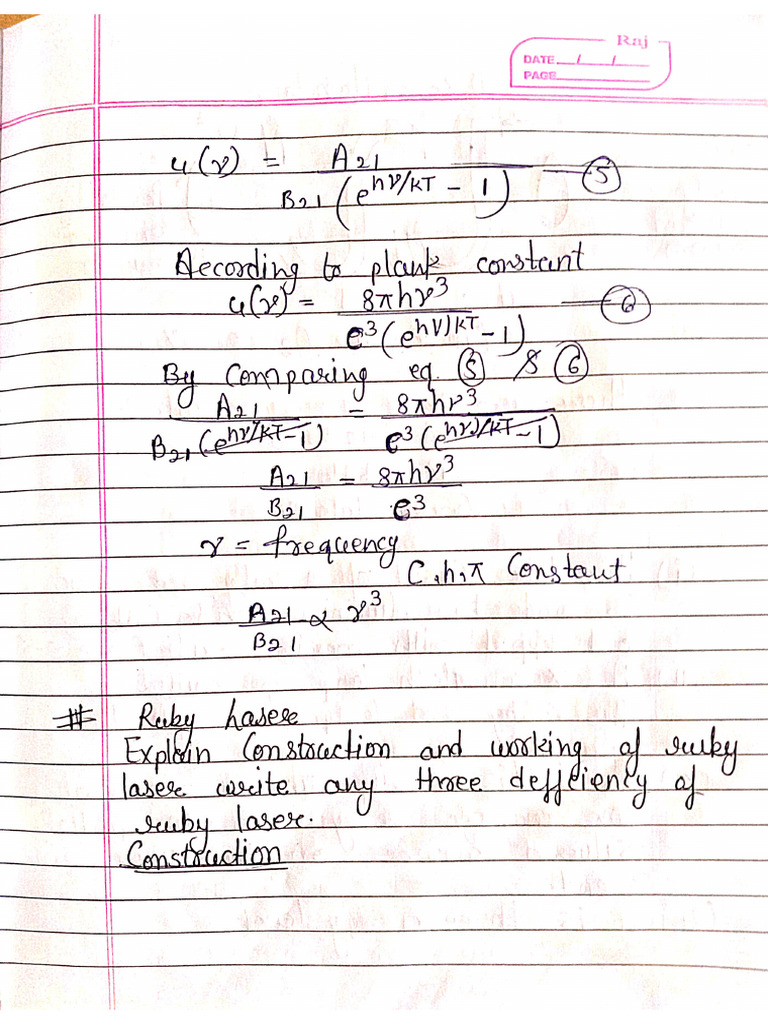 Raj
DATE / /
PAGE
u(ν) = A21 / B21 (e^hν/KT - 1) — ⑤
According to plank constant
u(ν) = 8πhν³ / c³ (e^hν)KT - 1) — ⑥
By Comparing eq. ⑤ & ⑥
A21 / B21 (e^hν/KT - 1) = 8πhν³ / c³ (e^hν)/KT - 1)
A21 / B21 = 8πhν³ / c³
ν = frequency
C, h, π Constant
A21 / B21 ∝ ν³
# Ruby laser
Explain Construction and working of ruby
laser write any three deffciency of
ruby laser.
Construction